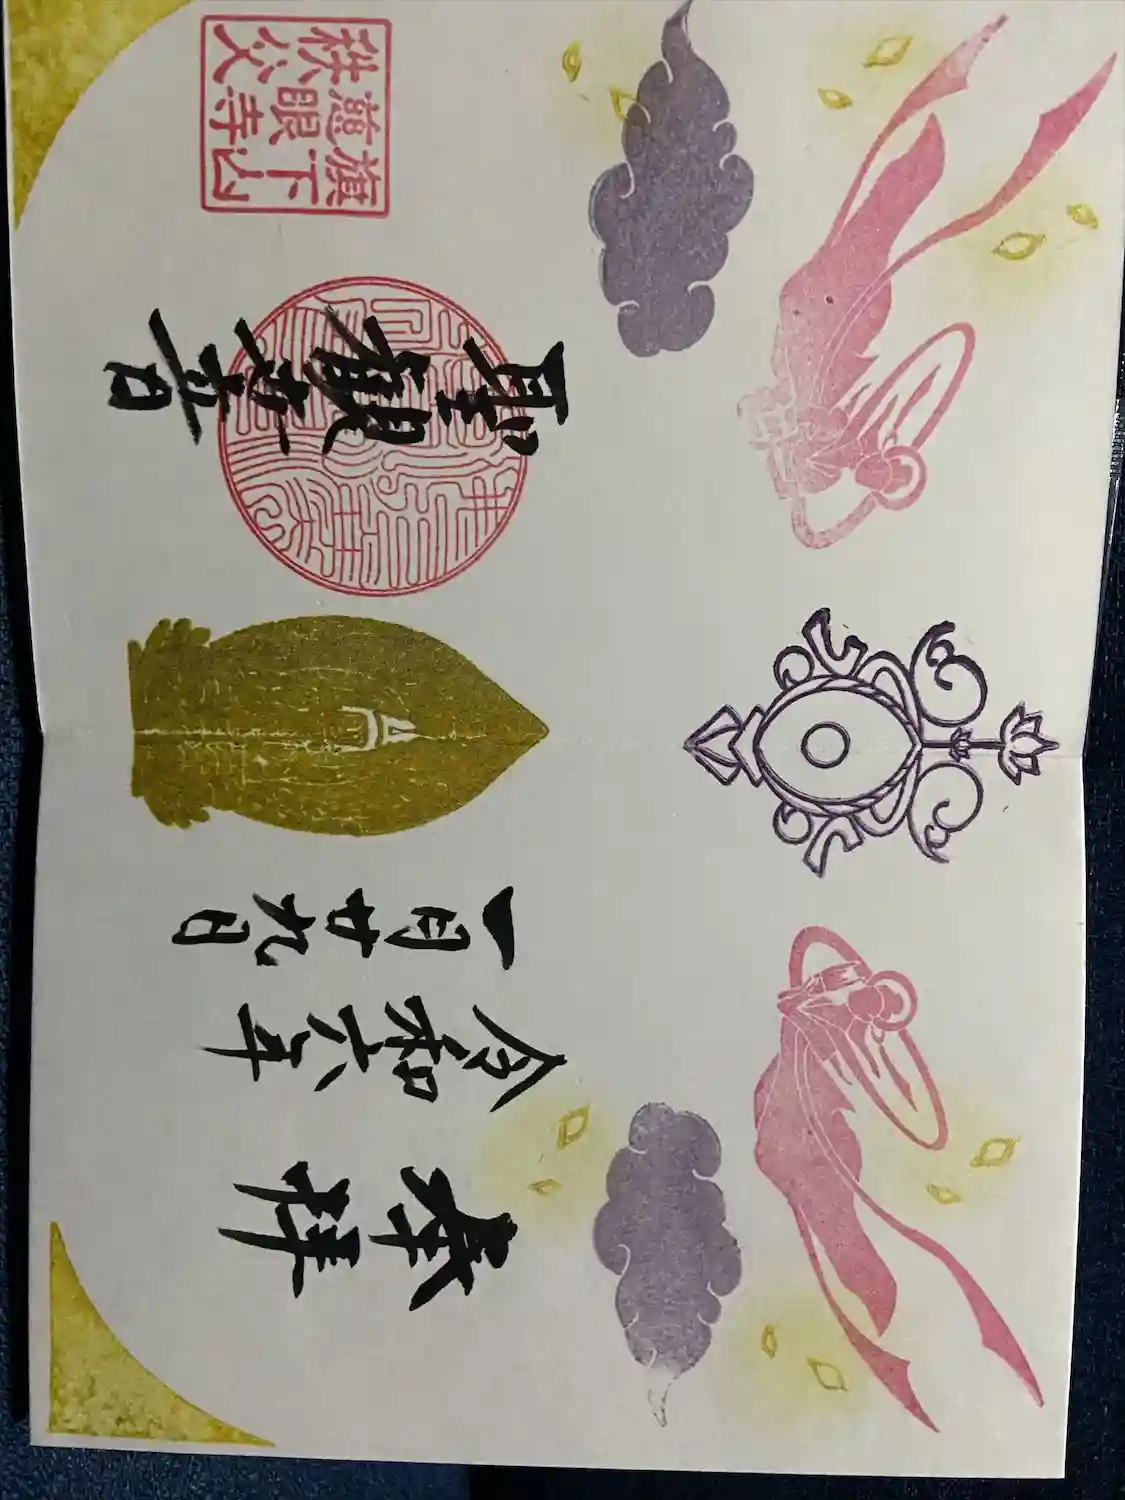 奉拝
令和六年
一月廿九日
聖観世音
旗下山
慈眼寺
秩父